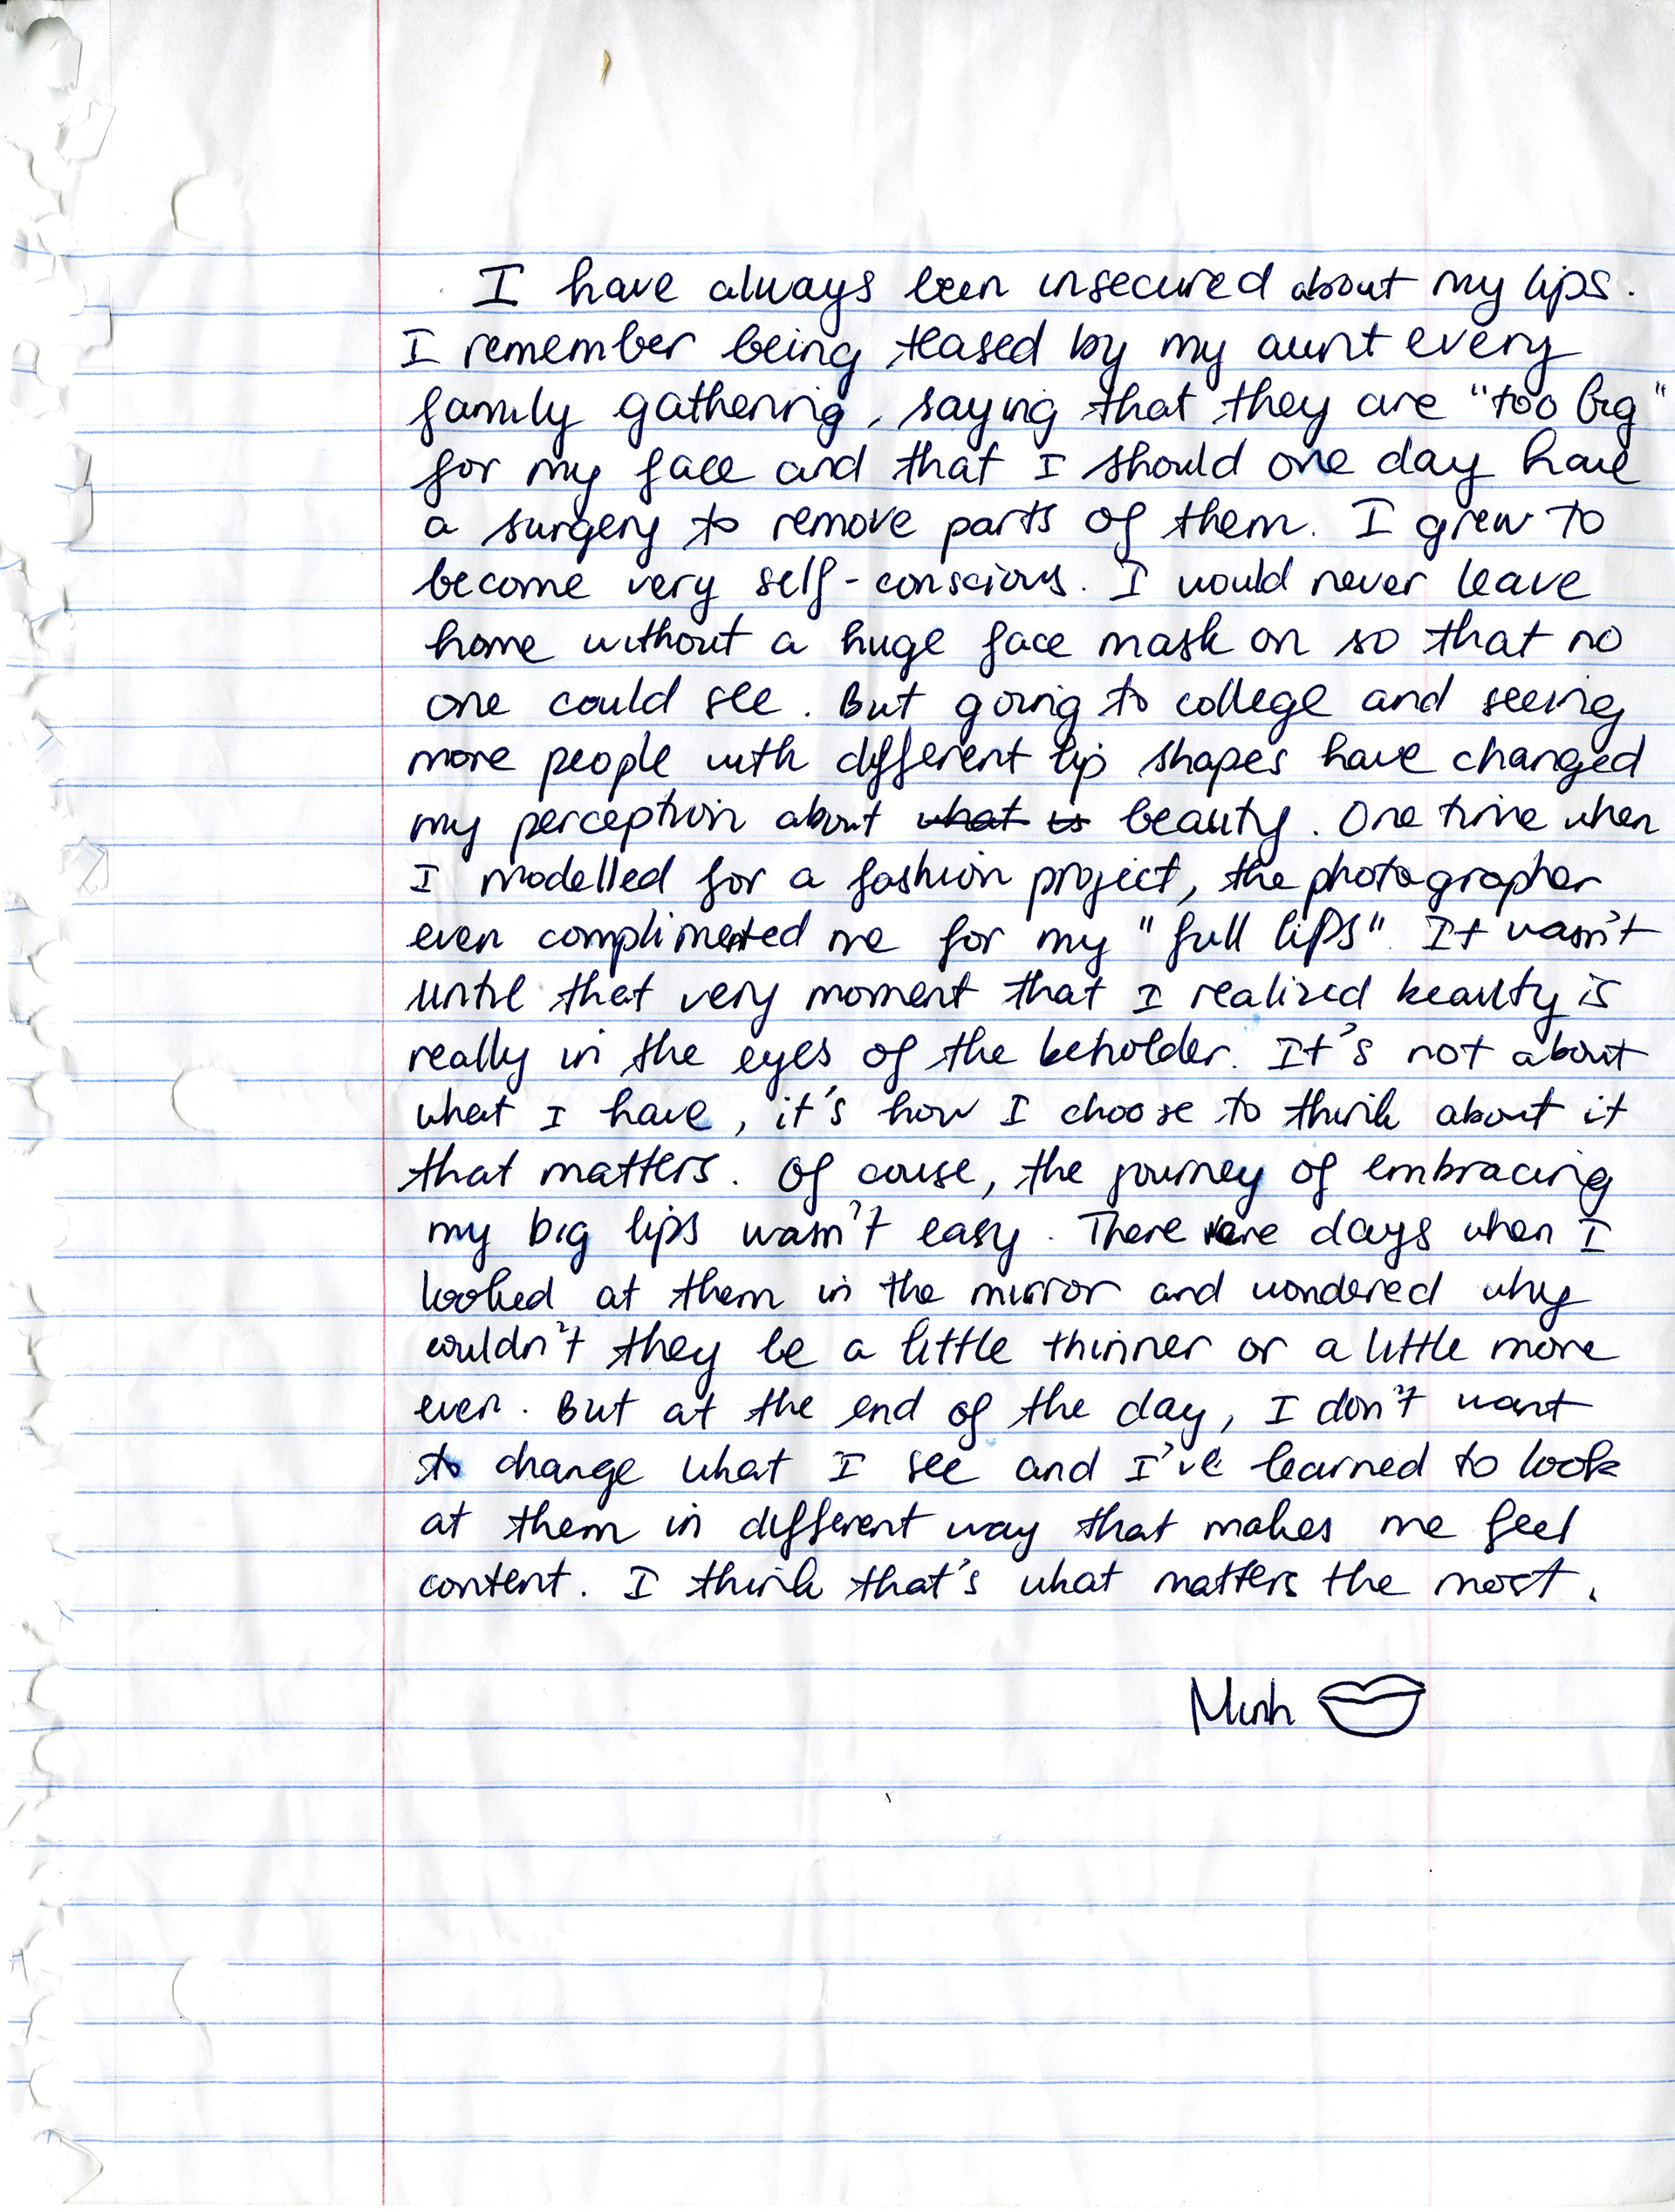 I have always been insecured about my lips.
I remember being teased by my aunt every
family gathering, saying that they are "too big"
for my face and that I should one day have
a surgery to remove parts of them. I grew to
become very self-conscious. I would never leave
home without a huge face mask on so that no
one could see. But going to college and seeing
more people with different lip shapes have changed
my perception about what is beauty. One time when
I modelled for a fashion project, the photographer
even complimented me for my "full lips". It wasn't
until that very moment that I realized beauty is
really in the eyes of the beholder. It's not about
what I have, it's how I choose to think about it
that matters. Of couse, the journey of embracing
my big lips wasn't easy. There were days when I
looked at them in the mirror and wondered why
couldn't they be a little thinner or a little more
even. But at the end of the day, I don't want
to change what I see and I've learned to look
at them in different way that makes me feel
content. I think that's what matters the most.
Minh